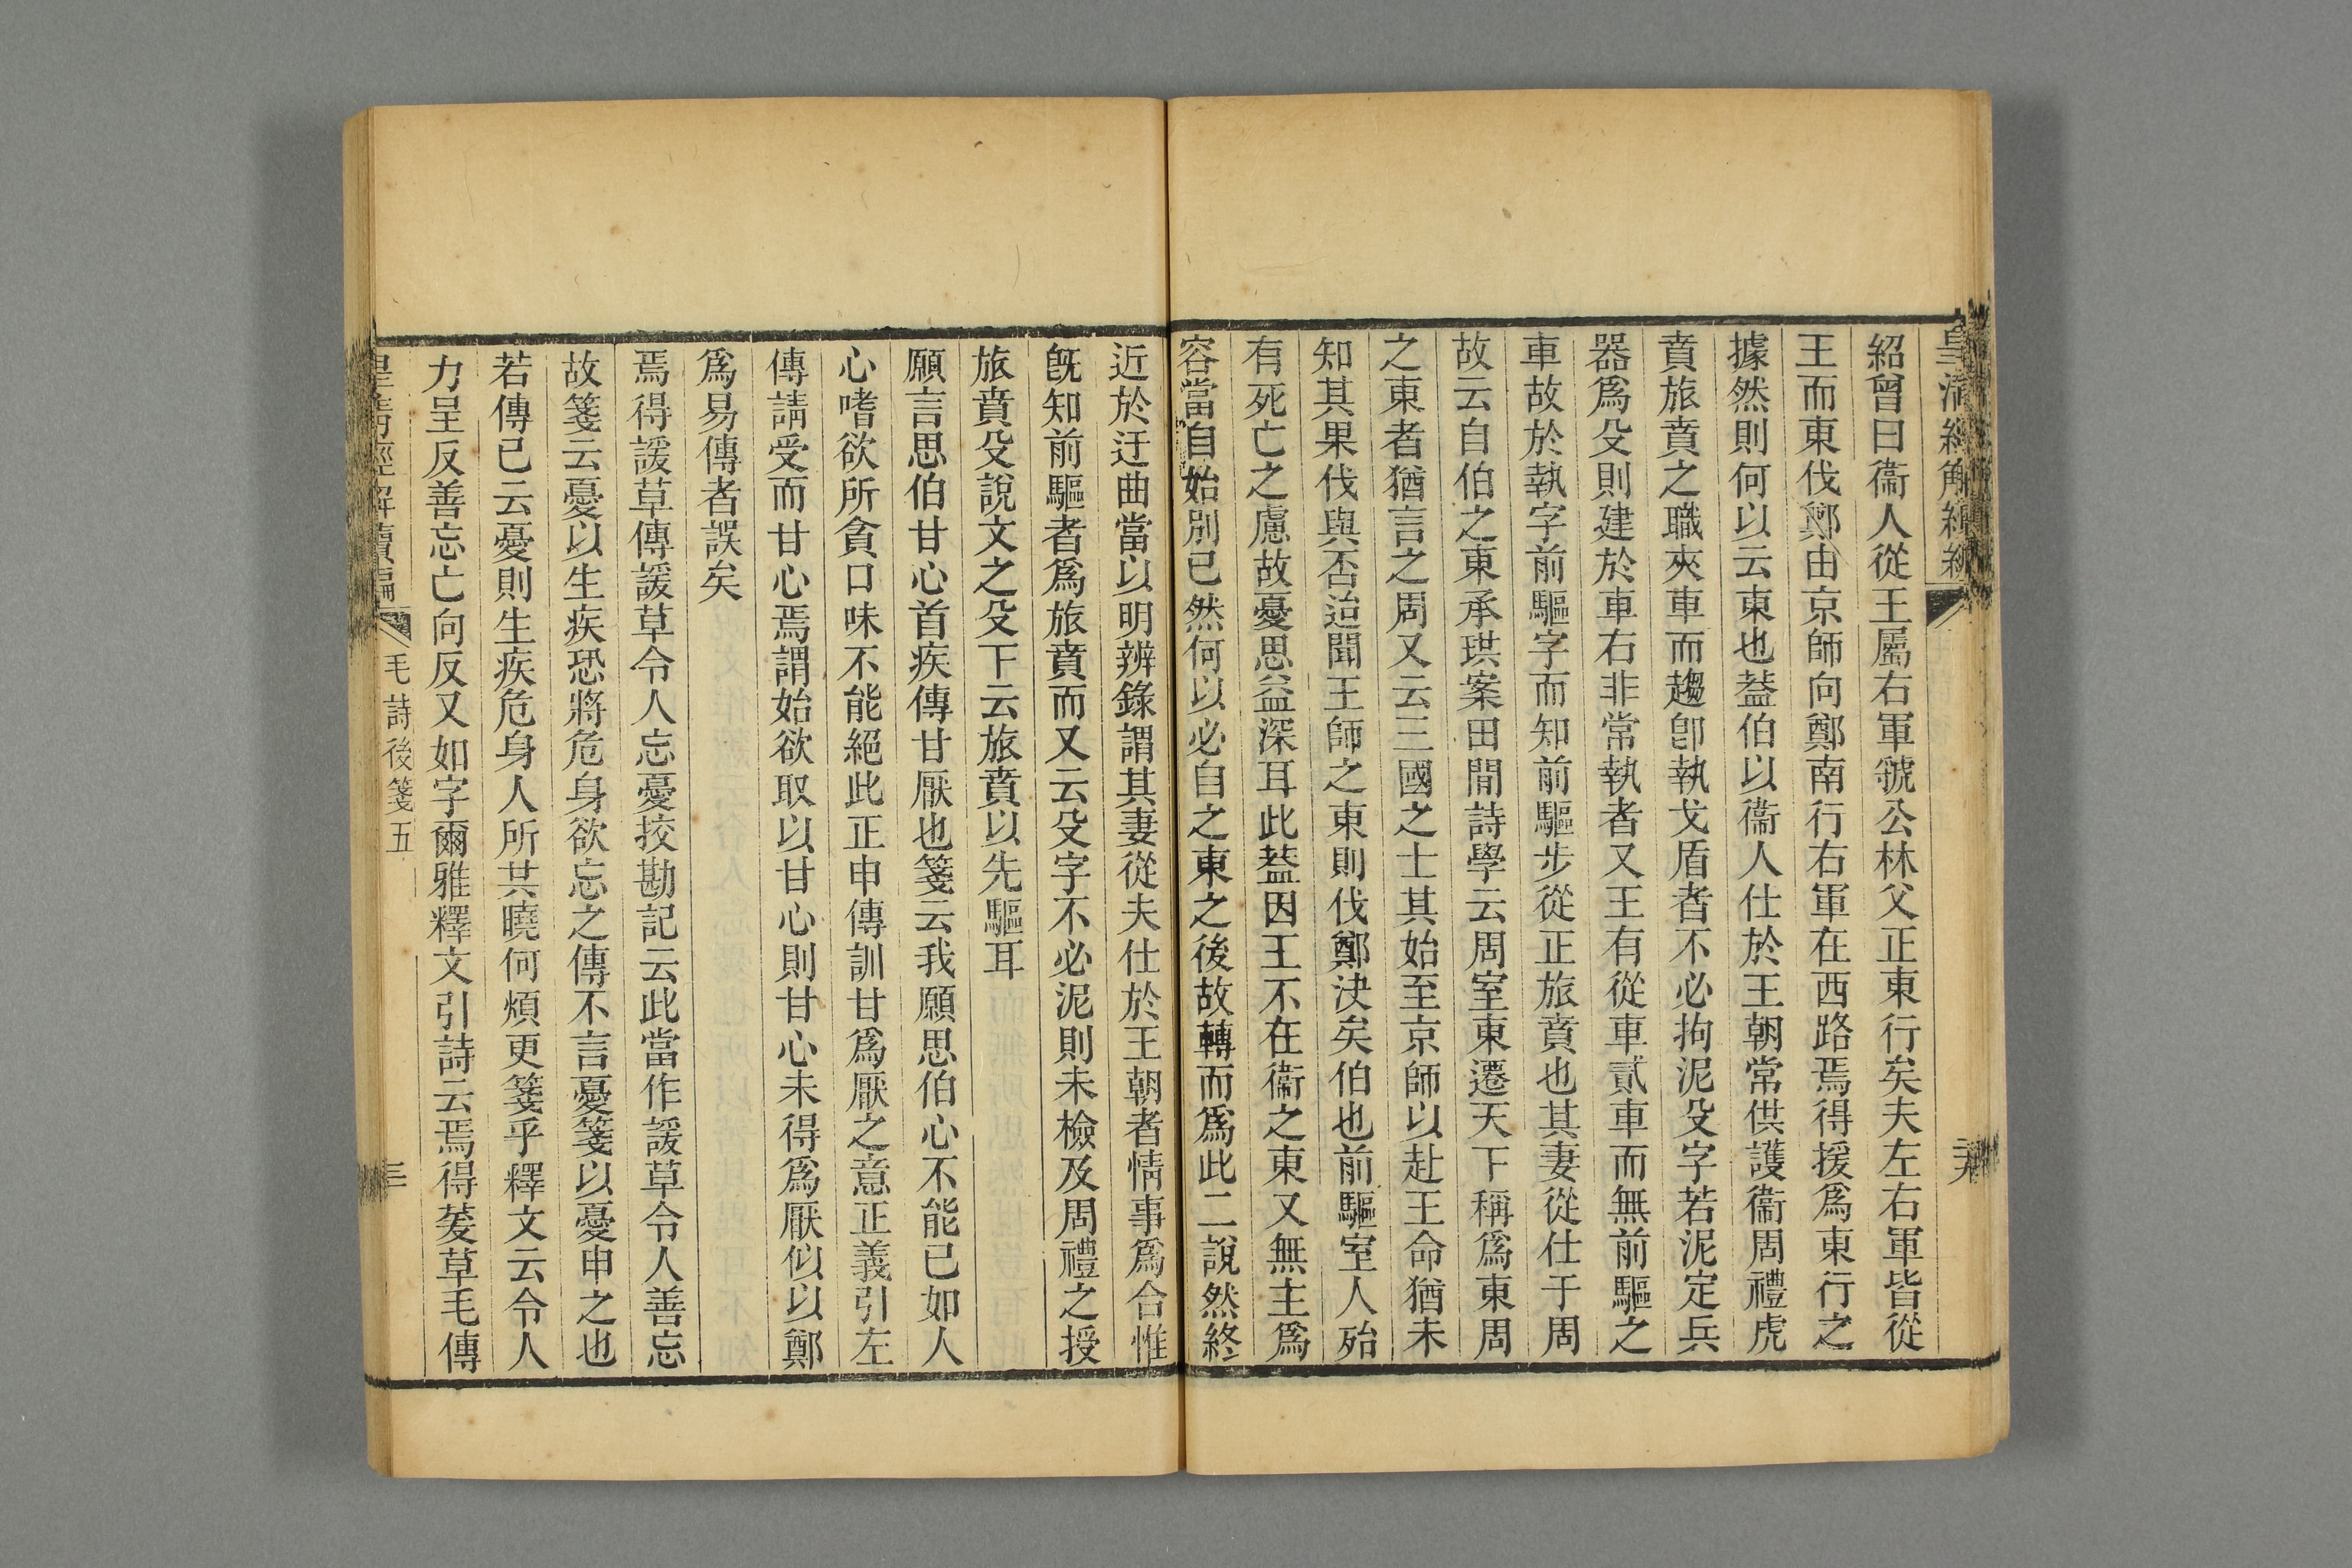 紹曾曰衞人從王屬右軍虢公林父正東行矣夫左右軍皆從
王而東伐鄭由京師向鄭南行右軍在西路焉得援爲東行之
據然則何以云東也葢伯以衞人仕於王朝常供護衞周禮虎
賁旅賁之職夾車而趨卽執戈盾者不必拘泥殳字若泥定兵
器爲殳則建於車右非常執者又王有從車貳車而無前驅之
車故於執字前驅字而知前驅步從正旅賁也其妻從仕于周
故云自伯之東承珙案田閒詩學云周室東遷天下稱爲東周
之東者猶言之周又云三國之士其始至京師以赴王命猶未
知其果伐與否迨聞王師之東則伐鄭決矣伯也前驅室人殆
有死亡之慮故憂思益深耳此葢因王不在衞之東又無主爲
容當自始別已然何以必自之東之後故轉而爲此二說然終
近於迂曲當以明辨錄謂其妻從夫仕於王朝者情事爲合惟
旣知前驅者爲旅賁而又云殳字不必泥則未檢及周禮之授
旅賁殳說文之殳下云旅賁以先驅耳
願言思伯甘心首疾傳甘厭也箋云我願思伯心不能已如人
心嗜欲所貪口味不能絕此正申傳訓甘爲厭之意正義引左
傳請受而甘心焉謂始欲取以甘心則甘心未得爲厭似以鄭
爲易傳者誤矣
焉得諼草傳諼草令人忘憂挍勘記云此當作諼草令人善忘
故箋云憂以生疾恐將危身欲忘之傳不言憂箋以憂申之也
若傳已云憂則生疾危身人所共曉何煩更箋乎釋文云令人
力呈反善忘亡向反又如字爾雅釋文引詩云焉得萲草毛傳
皇淸經解續編
毛詩後箋五